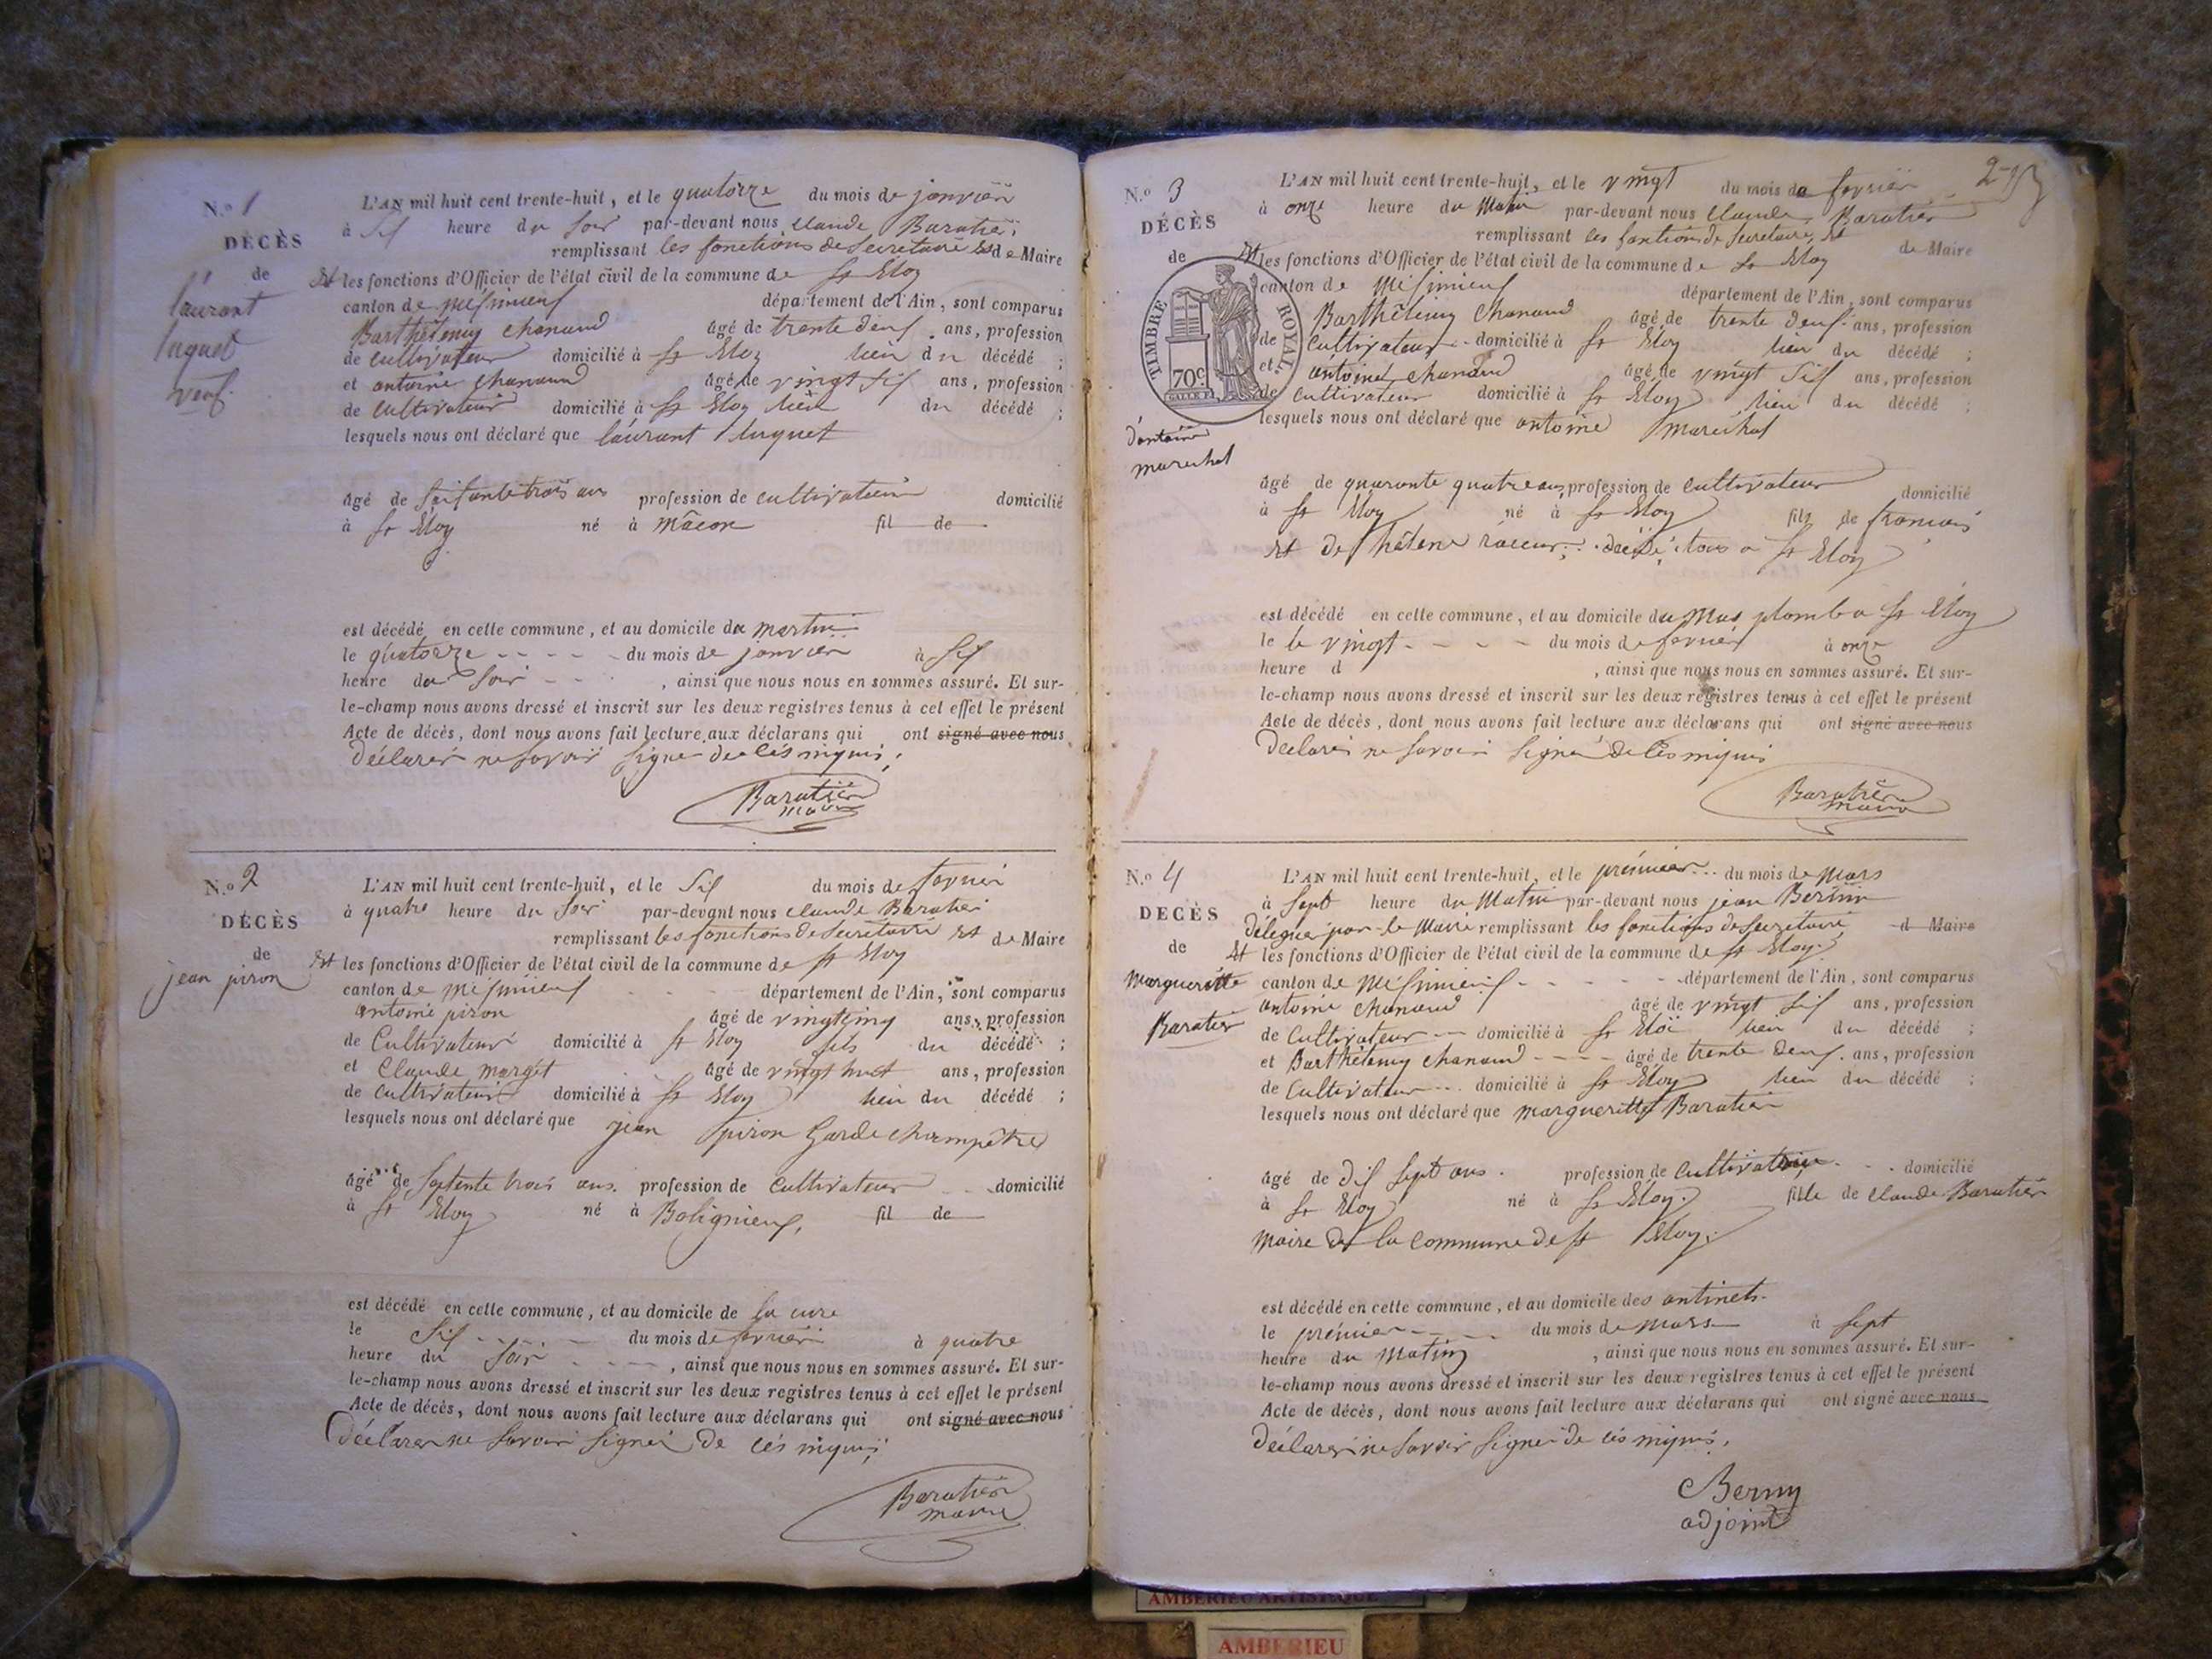 N.o 1
DÉCÈS
de
laurant
luquet
veuf.
L'AN mil huit cent trente-huit, et le quatorze du mois de janvier
à six heure du soir par-devant nous claude Baratier
remplissant les fonctions de Secretaire et de Maire
et les fonctions d'Officier de l'état civil de la commune de st Eloy
canton de meximieux département de l'Ain, sont comparus
Barthélemy chanaud âgé de trente deux ans, profession
de cultivateur domicilié à st Eloy lieu du décédé ;
et antoine chanaud âgé de vingt six ans, profession
de cultivateur domicilié à st Eloy lieu du décédé ;
lesquels nous ont déclaré que laurant luquet
âgé de soixante trois ans profession de cultivateur domicilié
à st Eloy né à mâcon fil de
est décédé en cette commune, et au domicile de martin
le quatorze du mois de janvier à six
heure du soir , ainsi que nous nous en sommes assuré. Et sur-
le-champ nous avons dressé et inscrit sur les deux registres tenus à cet effet le présent
Acte de décès, dont nous avons fait lecture aux déclarans qui ont signé avec nous
déclarér ne savoir signer de cés niquis
Baratier
maire
N.o 2
DÉCÈS
de
jean piron
L'AN mil huit cent trente-huit, et le six du mois de fevrier
à quatre heure du soir par-devant nous claude Baratier
remplissant les fonctions de Secretaire et de Maire
et les fonctions d'Officier de l'état civil de la commune de st Eloy
canton de meximieux département de l'Ain, sont comparus
antoine piron âgé de vingt cinq ans, profession
de Cultivateur domicilié à st Eloy fils du décédé ;
et Claude margét âgé de vingt huit ans, profession
de cultivateur domicilié à st Eloy lieu du décédé ;
lesquels nous ont déclaré que jean piron Garde champêtre
âgé de septente trois ans. profession de cultivateur domicilié
à st Eloy né à Bolignieux, fil de
est décédé en cette commune, et au domicile de la cure
le six du mois de fevrier à quatre
heure du soir , ainsi que nous nous en sommes assuré. Et sur-
le-champ nous avons dressé et inscrit sur les deux registres tenus à cet effet le présent
Acte de décès, dont nous avons fait lecture aux déclarans qui ont signé avec nous
déclarer ne savoir signer de cés niquis
Baratier
maire
2
N.o 3
DÉCÈS
de
TIMBRE ROYAL
70c
d'antoine
marechal
L'AN mil huit cent trente-huit, et le vingt du mois de fevrier
à onze heure du Matin par-devant nous claude Baratier
remplissant les fontions de secretaire, et de Maire
et les fonctions d'Officier de l'état civil de la commune de st Eloy
canton de Meximieux département de l'Ain, sont comparus
Barthélemy chanaud âgé de trente deux ans, profession
de Cultivateur domicilié à st Eloy lieu du décédé ;
et antoine chanaud âgé de vingt six ans, profession
de cultivateur domicilié à st Eloy lieu du décédé ;
lesquels nous ont déclaré que antoine marechal
âgé de quarante quatre ans, profession de cultivateur domicilié
à st Eloy né à st Eloy fils de francois
et de hélene décédé tous a st Eloy
est décédé en cette commune, et au domicile du mas plomb a st Eloy
le le vingt du mois de fevrier à onze
heure d , ainsi que nous nous en sommes assuré. Et sur-
le-champ nous avons dressé et inscrit sur les deux registres tenus à cet effet le présent
Acte de décès, dont nous avons fait lecture aux déclarans qui ont signé avec nous
declarer ne savoir signer de cés niquis
Baratier
maire
N.o 4
DÉCÈS
de
Margueritte
Baratier
L'AN mil huit cent trente-huit, et le prémier du mois de Mars
à sept heure du Matin par-devant nous jean Bernin
déleguer par le Maire remplissant les fonctions de secretaire d Maire
et les fonctions d'Officier de l'état civil de la commune de st Eloy
canton de Meximieux département de l'Ain, sont comparus
antoine chanaud âgé de vingt six ans, profession
de cultivateur domicilié à st Eloi lieu du décédé ;
et Barthélemy chanaud âgé de trente deux ans, profession
de cultivateur domicilié à st Eloy lieu du décédé ;
lesquels nous ont déclaré que margueritte Baratier
âgé de dix sept ans. profession de cultivatrice domicilié
à st Eloy né à st Eloy fille de claude Baratier
maire de la commune de st Eloy.
est décédé en cette commune, et au domicile des antinets
le prémier du mois de mars à sept
heure du matin , ainsi que nous nous en sommes assuré. Et sur-
le-champ nous avons dressé et inscrit sur les deux registres tenus à cet effet le présent
Acte de décès, dont nous avons fait lecture aux déclarans qui ont signé avec nous
déclarer ne savoir signer de cés niquis.
Berniy
adjoint
AMBERIEU ARTISTIQUE
AMBERIEU